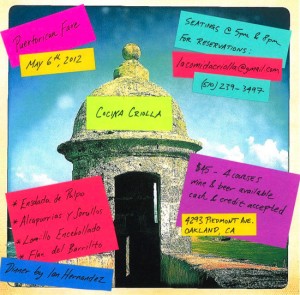 Puertorican Fare
May 6th, 2012
SEATINGS @ 5pm & 8pm
FOR RESERVATIONS:
lacomidacriolla@gmail.com
(510) 239-3497
COCINA CRIOLLA
* Ensalada de Pulpo
* Alcapurrias y Sorullos
* Lomillo Encebollado
* Flan del Barrilito
Dinner by Ian Hernandez
$45 - 4 courses
wine & beer available
cash & credit accepted
4293 PIEDMONT AVE.
OAKLAND, CA